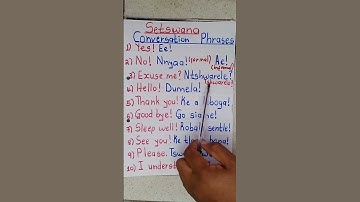 Setswana
Conversation Phrases
1) Yes! Ee!
2) No! Nnyaa! (formal) Ae! (informal)
3) Excuse me? Ntshwarele!
4) Hello! Dumela!
5) Thank you! Ke a boga!
6) Good bye! Go siame!
7) Sleep well! Robal sentle!
8) See you! Ke
9) Please.
10) I underst